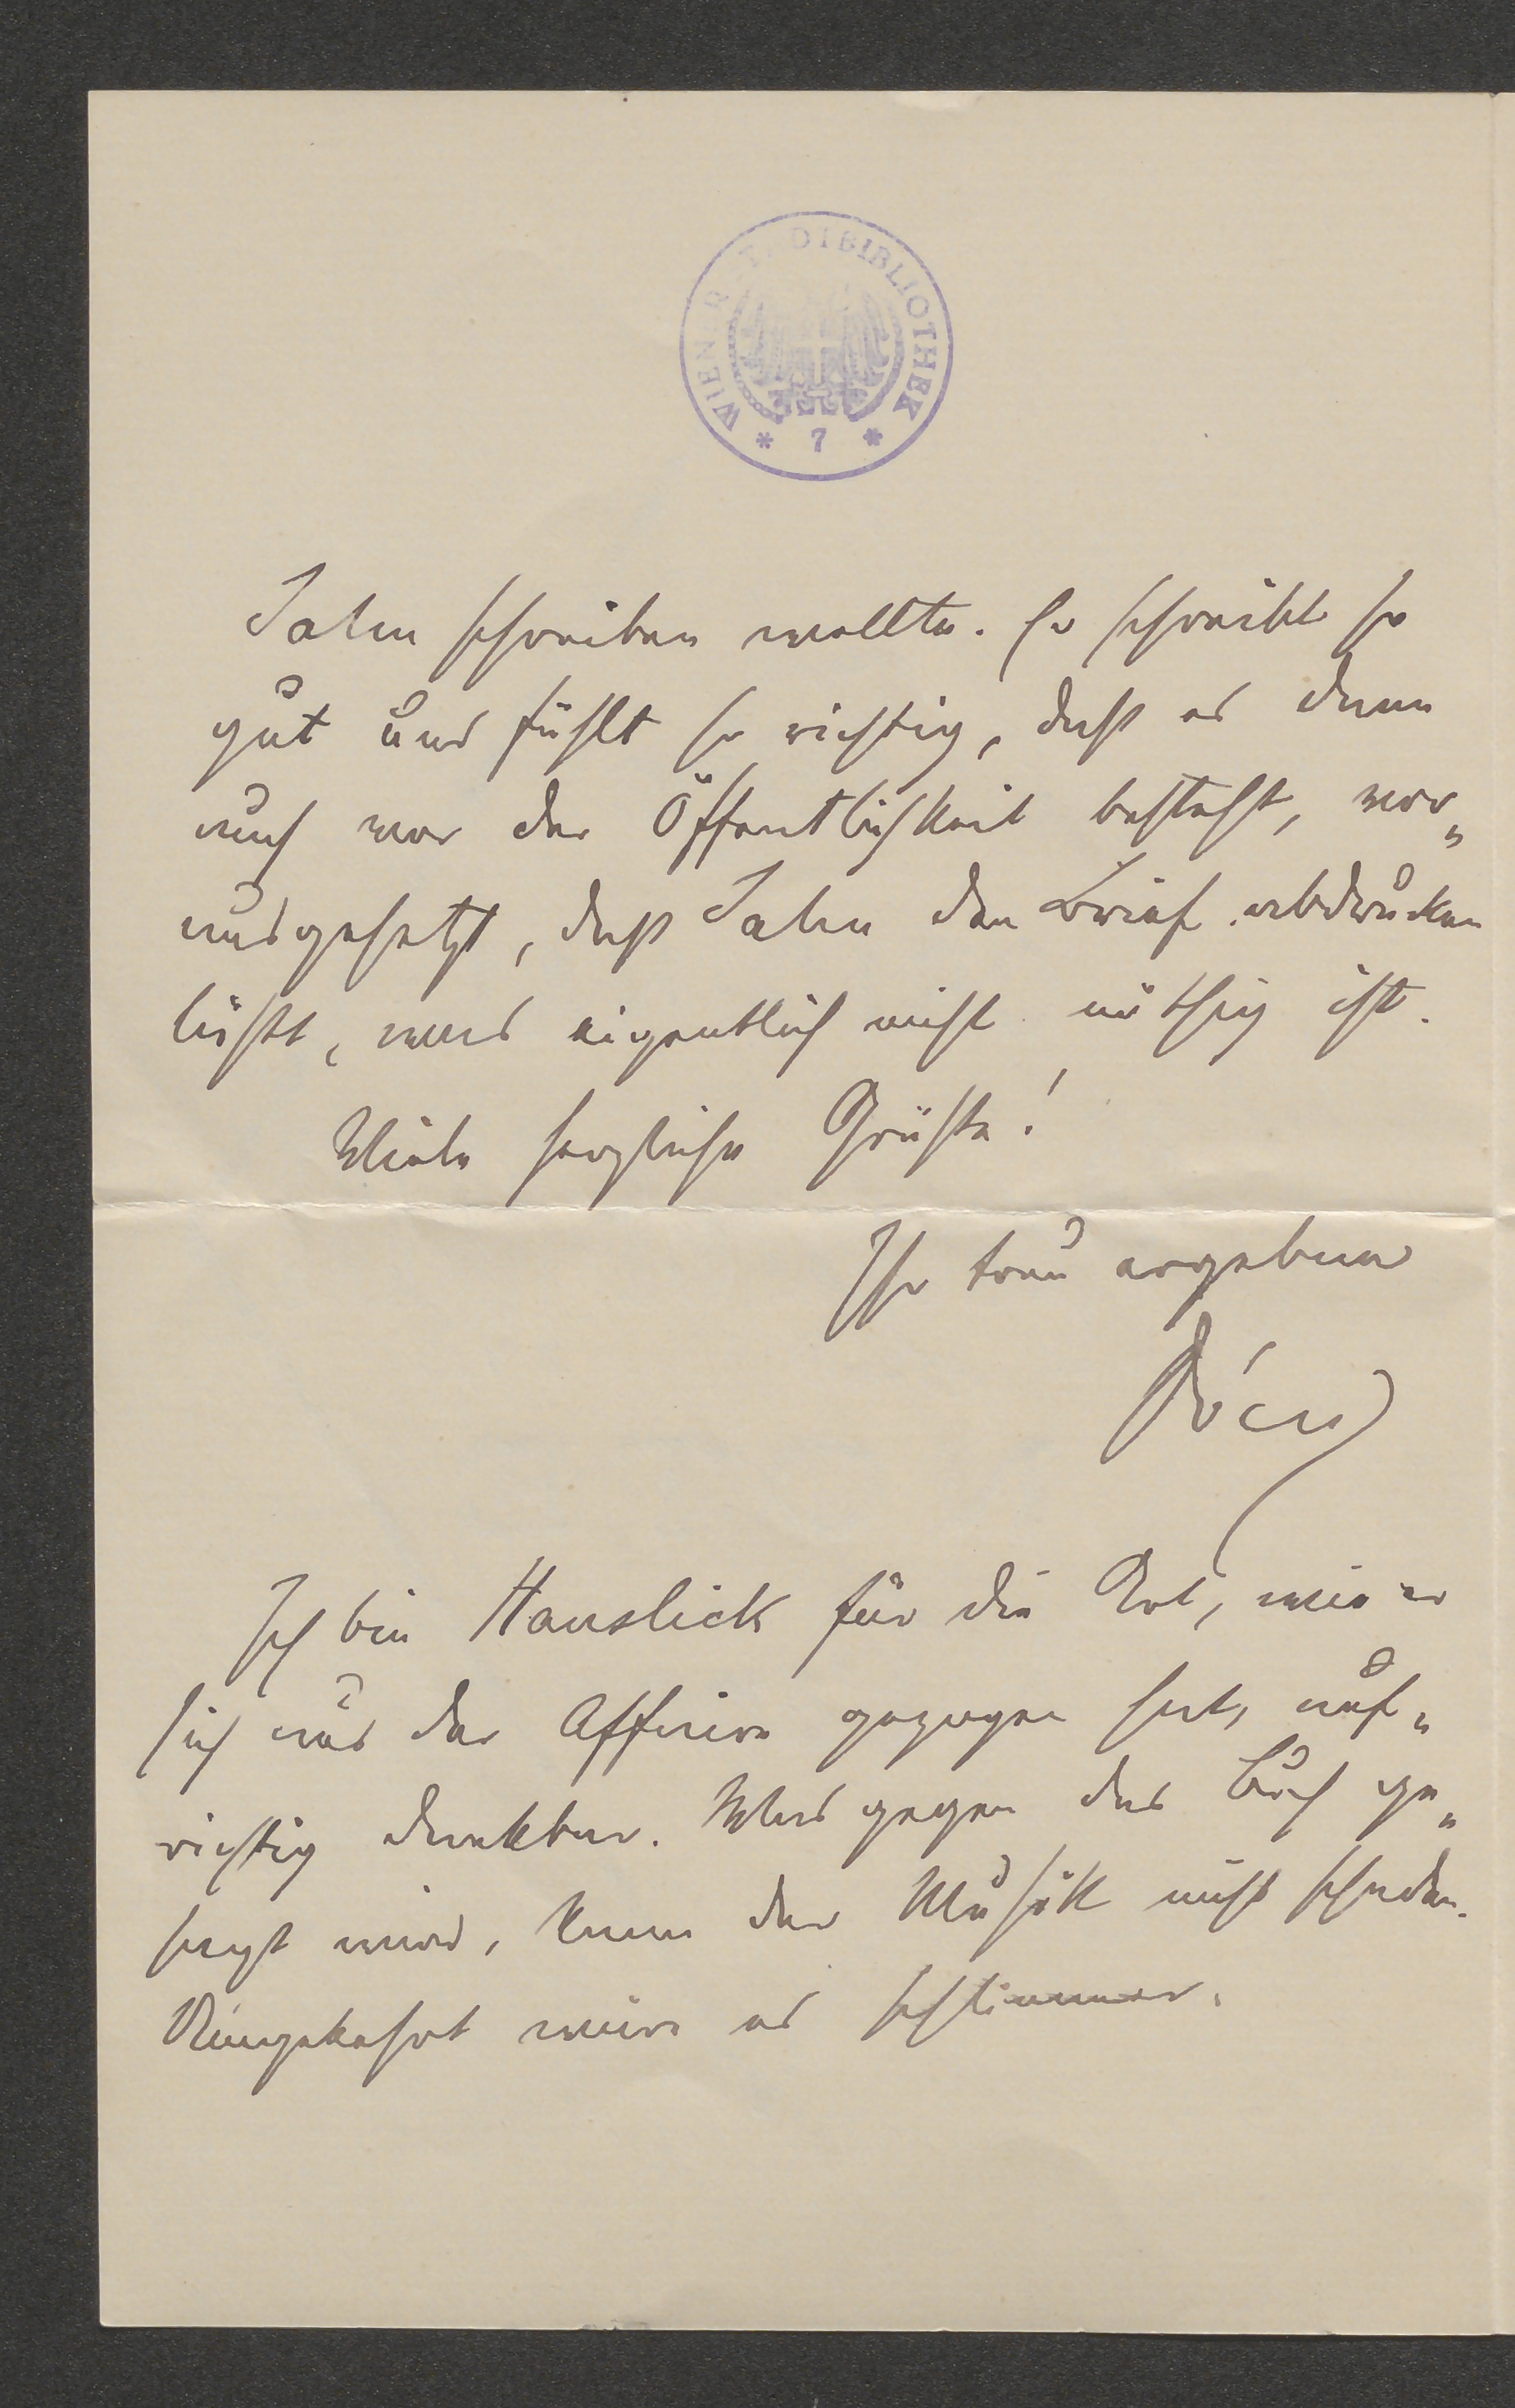 WIENER STADTBIBLIOTHEK
* 7 *
Jahn schreiben wollte. Er schreibt so
gut und fühlt so richtig, daß es dann
auch vor der Öffentlichkeit besteht, vor„
ausgesetzt, daß Jahn den Brief abdrucken
läßt, was eigentlich nicht nöthig ist.
Viele herzliche Grüße!
Ihr treu ergebener
Dóczi
Ich bin Hanslick für die Art, wie er
sich aus der Affaire gezogen hat, auf„
richtig dankbar. Was gegen das Buch ge„
sagt wird, kann der Musik nicht schaden.
Umgekehrt wäre es schlimmer.